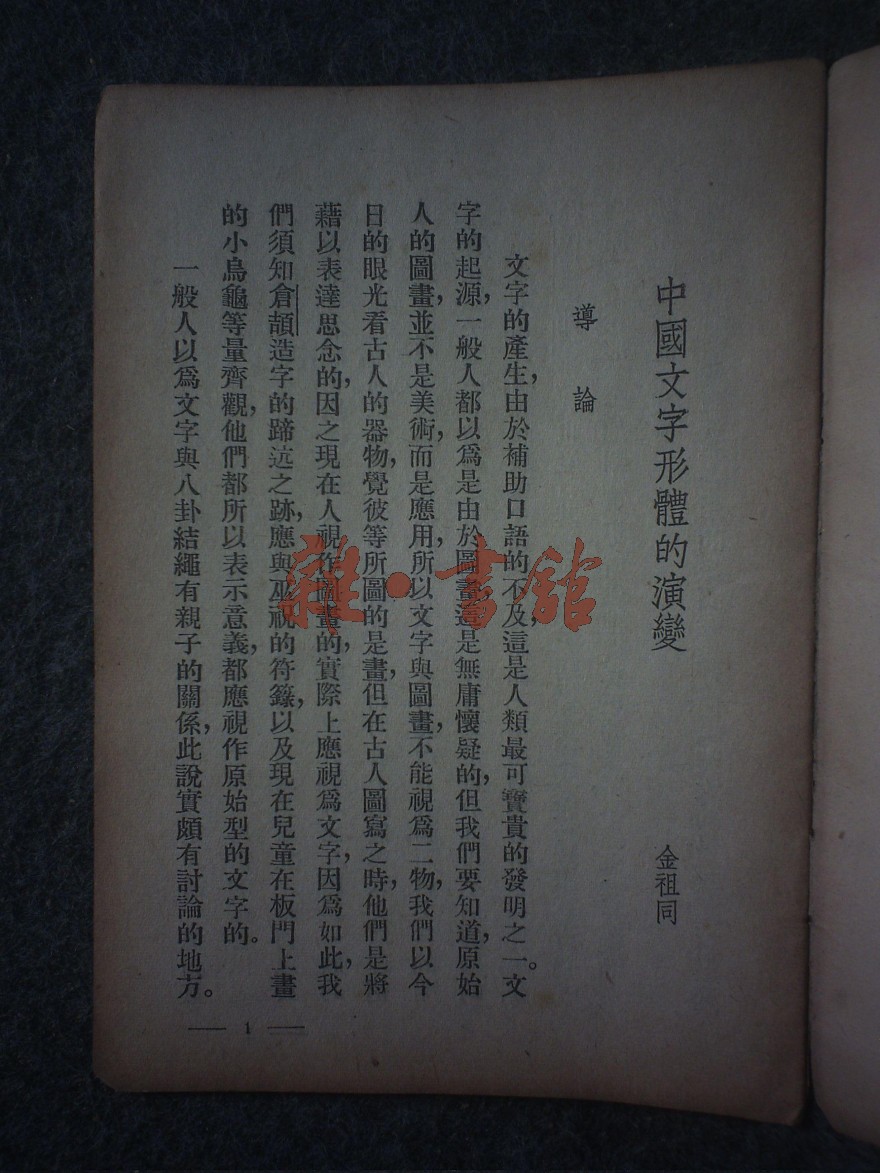 中國文字形體的演變
金祖同
導論
文字的產生,由於補助口語的不及,這是人類最可寶貴的發明之一。文
字的起源,一般人都以爲是由於圖畫,這是無庸懷疑的,但我們要知道,原始
人的圖畫,並不是美術,而是應用,所以文字與圖畫,不能視爲二物,我們以今
日的眼光看古人的器物,覺彼等所圖的是畫,但在古人圖寫之時,他們是將
藉以表達思念的,因之現在人視作圖畫的,實際上應視爲文字,因爲如此,我
們須知倉頡造字的蹄迒之跡,應與巫祝的符籙,以及現在兒童在板門上畫
的小烏龜等量齊觀,他們都所以表示意義,都應視作原始型的文字的。
一般人以爲文字與八卦結繩有親子的關係,此說實頗有討論的地方。
— 1 —
雜·書館